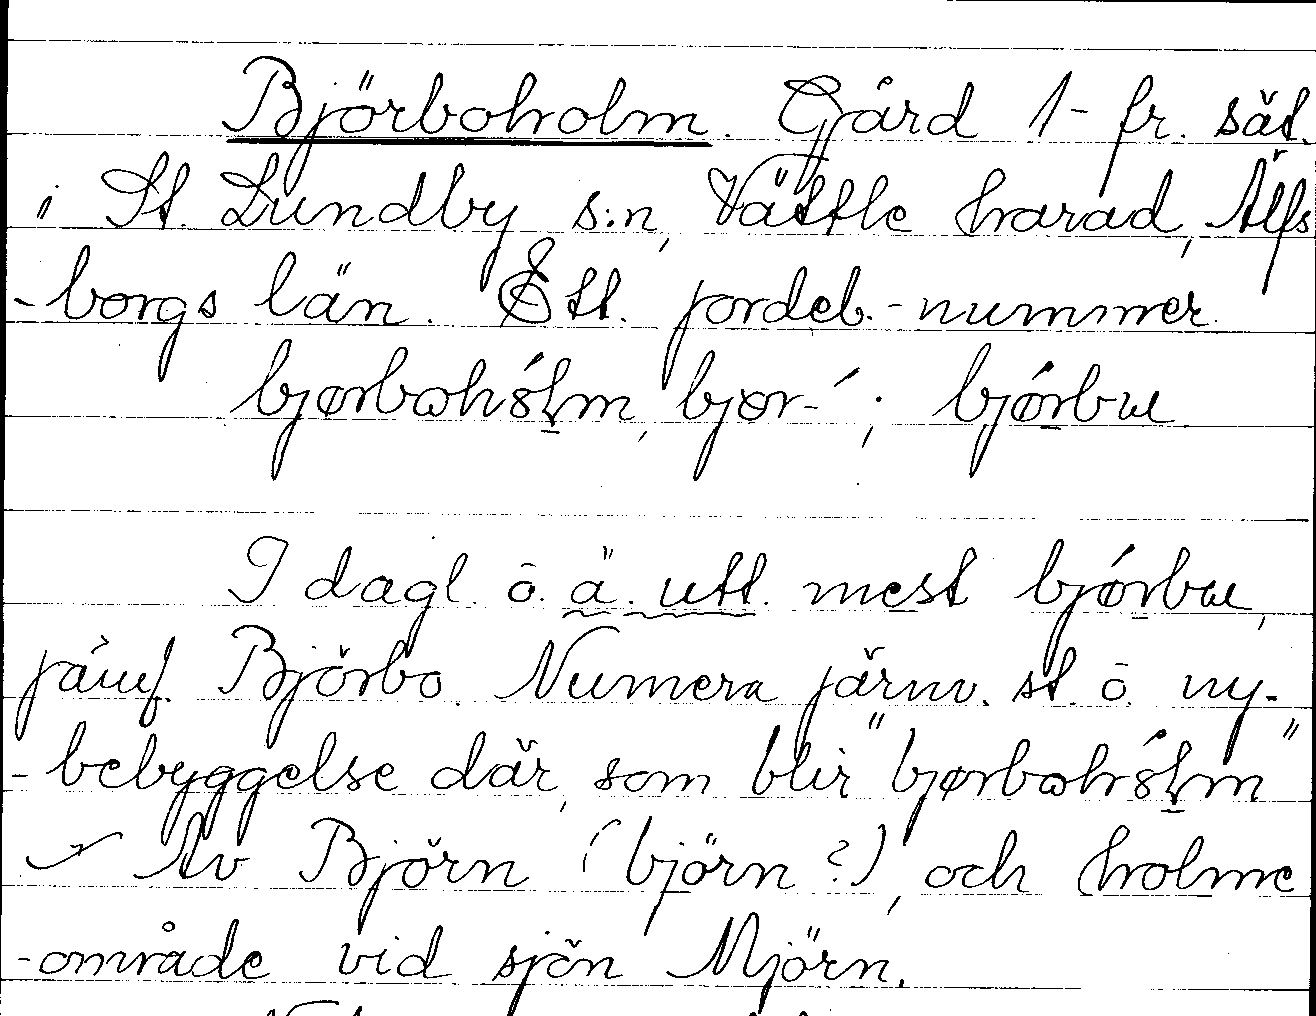 Björboholm. Gård 1- fr. sät.
i St. Lundby s:n, Vättle härad, Älfs
-borgs län. Ett. jordeb.-nummer.
bjørbωhólm, bjør-´; bjǿrbɯ
I dagl. ö. ä. utt. mest bjǿrbɯ,
jämf. Björbo. Numera järnv. st. o. ny-
-bebyggelse där, som blir "bjørbωhólm"
Av Björn (björn?), och holme
-område vid sjön Mjörn.